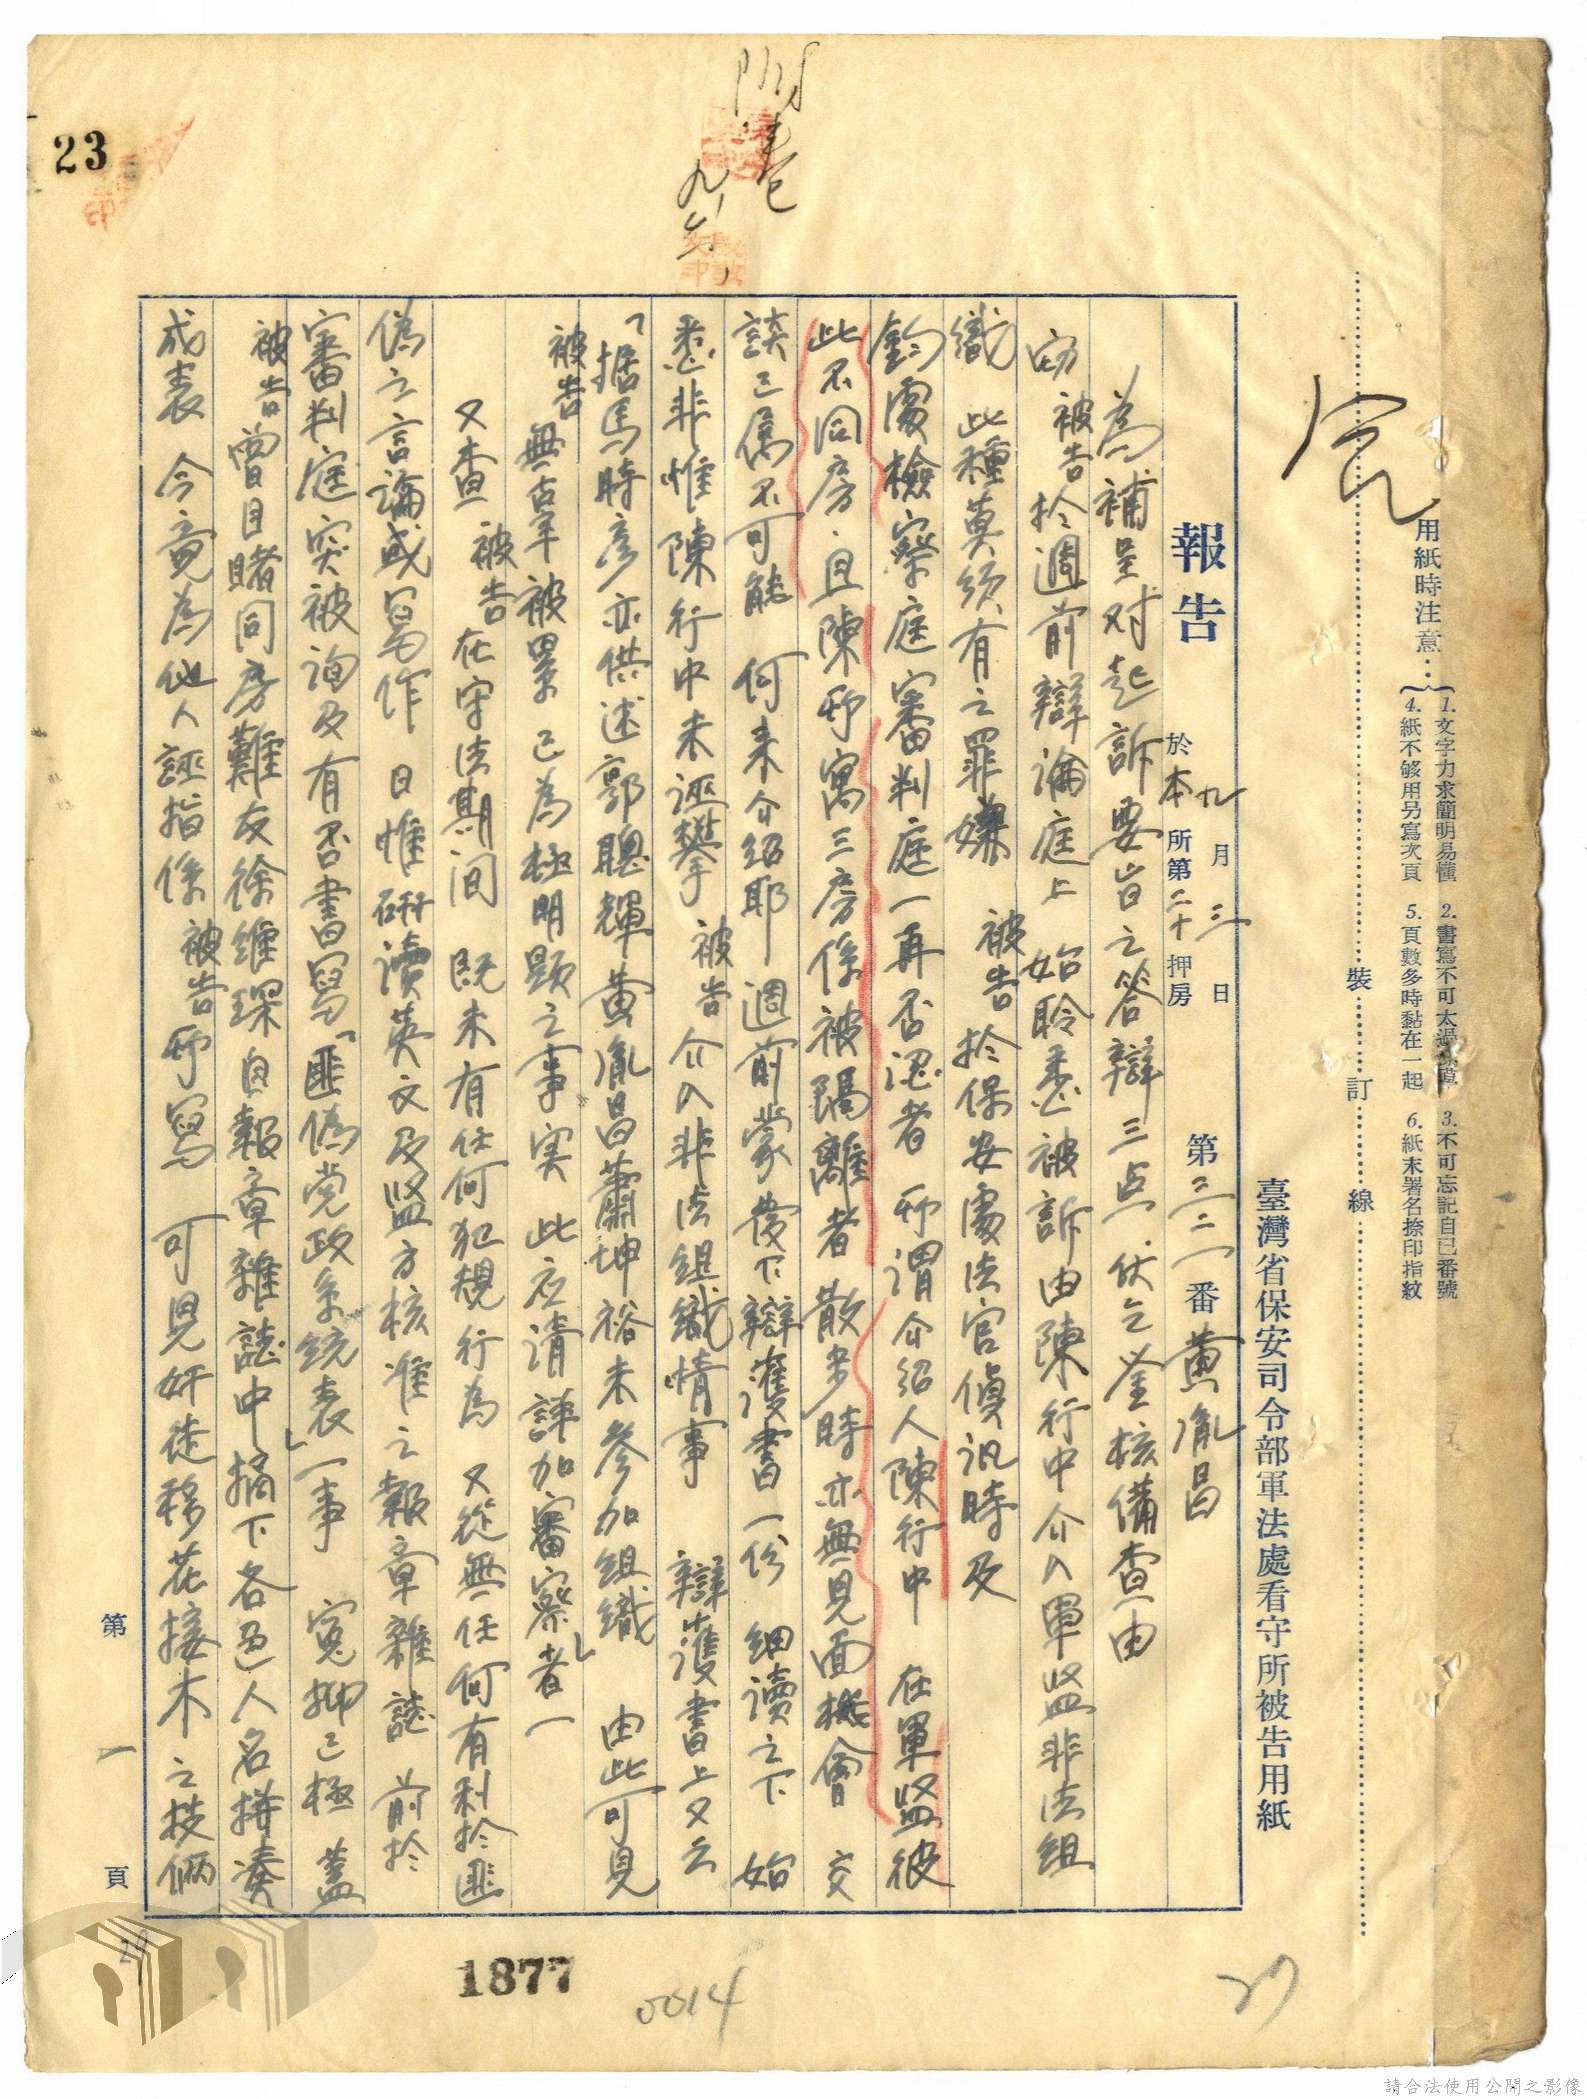 用紙時注意：
1.文字力求簡明易懂 2.書寫不可太過潦草 3.不可忘記自己番號
4.紙不够用另寫次頁 5.頁數多時黏在一起 6.紙末署名捺印指紋
裝 訂 線
臺灣省保安司令部軍法處看守所被告用紙
報告
九月三日
於本所第二十押房
第三二一番 黄胤昌
為補呈对起訴要旨之答辯三点 伏乞鉴核備查由
窃被告於週前辯論庭上 始聆悉被訴由陳行中介入軍監非法組
織 此種莫須有之罪嫌 被告於保安處法官偵訊時及
鈞處檢察庭審判庭一再否認者 所謂介紹人陳行中 在軍監彼
此不同房．且陳所寓三房係被隔離者 散步時亦無見面機會 交
談已属不可能 何来介紹耶 週前蒙發下辯護書一份 細讀之下 始
悉非惟陳行中未誣攀被告介入非法組織情事 辯護書上又云
「据馬時彦亦供述郭聰輝黄胤昌蕭坤裕未參加組織 由此可見
被告無辜被累已為極明顯之事実 此应請詳加審察者一」
又查被告在守法期间 既未有任何犯規行為 又從無任何有利於匪
偽之言論或寫作 日惟研讀英文及监方核准之報章雜誌 前於
審判庭突被詢及有否書寫「匪偽党政系統表」一事 寃抑已極 蓋
被告曾目睹同房難友徐維琛自報章雜誌中摘下各色人名拼凑
成表 今竟為他人誣指係被告所寫 可見奸徒移花接木之技俩
第一頁
附卷
九、六、
23
1877
0014
27
請合法使用公開之影像